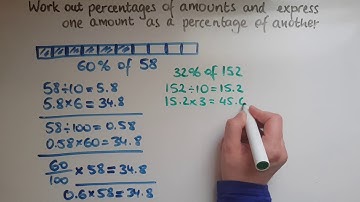 Work out percentages of amounts and express
one amount as a percentage of another
60% of 58
58÷10 = 5.8
5.8×6 = 34.8
58÷100 = 0.58
0.58×60=34.8
60/100 ×58 = 34.8
0.6×58=34.8
32% of 152
152÷10=15.2
15.2×3=45.6